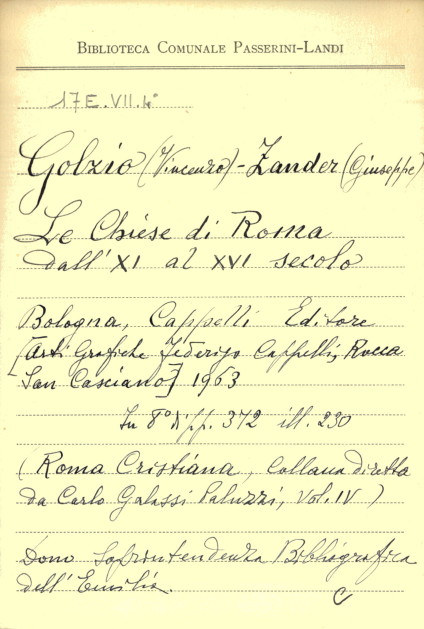 BIBLIOTECA COMUNALE PASSERINI-LANDI
17 E. VII. 4°
Golzio (Vincenzo) - Zander (Giuseppe)
Le Chiese di Roma
dall' XI al XVI secolo
Bologna, Cappelli Editore
[Arti Grafiche Federigo Cappelli, Rocca
San Casciano] 1963
In 8° di pp. 372 ill. 230
(Roma Cristiana, Collana diretta
da Carlo Galassi Paluzzi, Vol. IV)
Dono Soprintendenza Bibliografica
dell' Emilia.
C